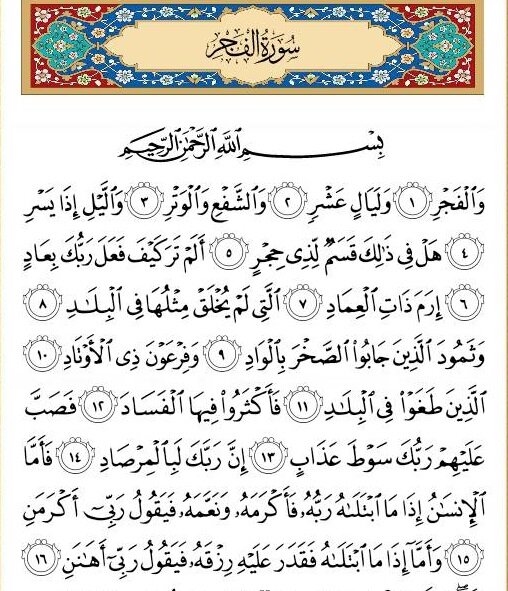 سُورَةُ الفَجْرِ
بِسْمِ اللَّهِ الرَّحْمَٰنِ الرَّحِيمِ
وَالْفَجْرِ ١ وَلَيَالٍ عَشْرٍ ٢ وَالشَّفْعِ وَالْوَتْرِ ٣ وَاللَّيْلِ إِذَا يَسْرِ
٤ هَلْ فِي ذَٰلِكَ قَسَمٌ لِّذِي حِجْرٍ ٥ أَلَمْ تَرَ كَيْفَ فَعَلَ رَبُّكَ بِعَادٍ
٦ إِرَمَ ذَاتِ الْعِمَادِ ٧ الَّتِي لَمْ يُخْلَقْ مِثْلُهَا فِي الْبِلَٰدِ ٨
وَثَمُودَ الَّذِينَ جَابُوا الصَّخْرَ بِالْوَادِ ٩ وَفِرْعَوْنَ ذِي الْأَوْتَادِ ١٠
الَّذِينَ طَغَوْا فِي الْبِلَٰدِ ١١ فَأَكْثَرُوا فِيهَا الْفَسَادَ ١٢ فَصَبَّ
عَلَيْهِمْ رَبُّكَ سَوْطَ عَذَابٍ ١٣ إِنَّ رَبَّكَ لَبِالْمِرْصَادِ ١٤ فَأَمَّا
الْإِنسَٰنُ إِذَا مَا ابْتَلَىٰهُ رَبُّهُۥ فَأَكْرَمَهُۥ وَنَعَّمَهُۥ فَيَقُولُ رَبِّيٓ أَكْرَمَنِ
١٥ وَأَمَّآ إِذَا مَا ابْتَلَىٰهُ فَقَدَرَ عَلَيْهِ رِزْقَهُۥ فَيَقُولُ رَبِّيٓ أَهَٰنَنِ ١٦